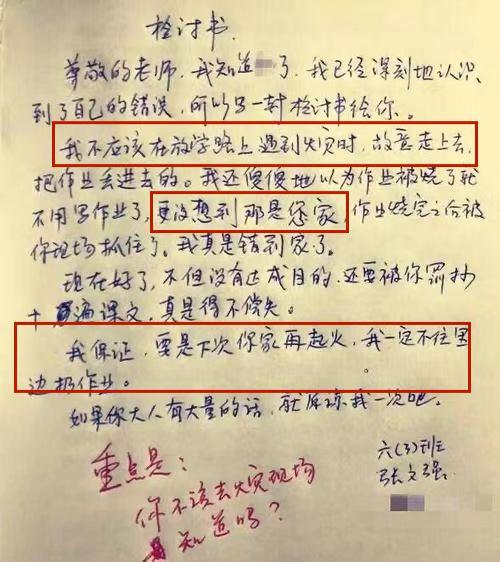 检讨书.
尊敬的老师,我知道 了,我已经深刻地认识
到了自己的错误,所以写一封检讨书给你。
我不应该在放学路上遇到火灾时,故意走上去,
把作业丢进去的。我还傻傻地以为作业被烧了就
不用写作业了,更没想到那是您家,作业烧完之后被
你现场抓住了。我真是错到家了。
现在好了,不但没有达成目的,还要被你罚抄
十遍课文,真是得不偿失。
我保证,要是下次你家再起火,我一定不往里
边扔作业。
如果你大人有大量的话,就原谅我一次吧。
六(3)班
张文强
重点是:
你不该去火灾现场
知道吗?